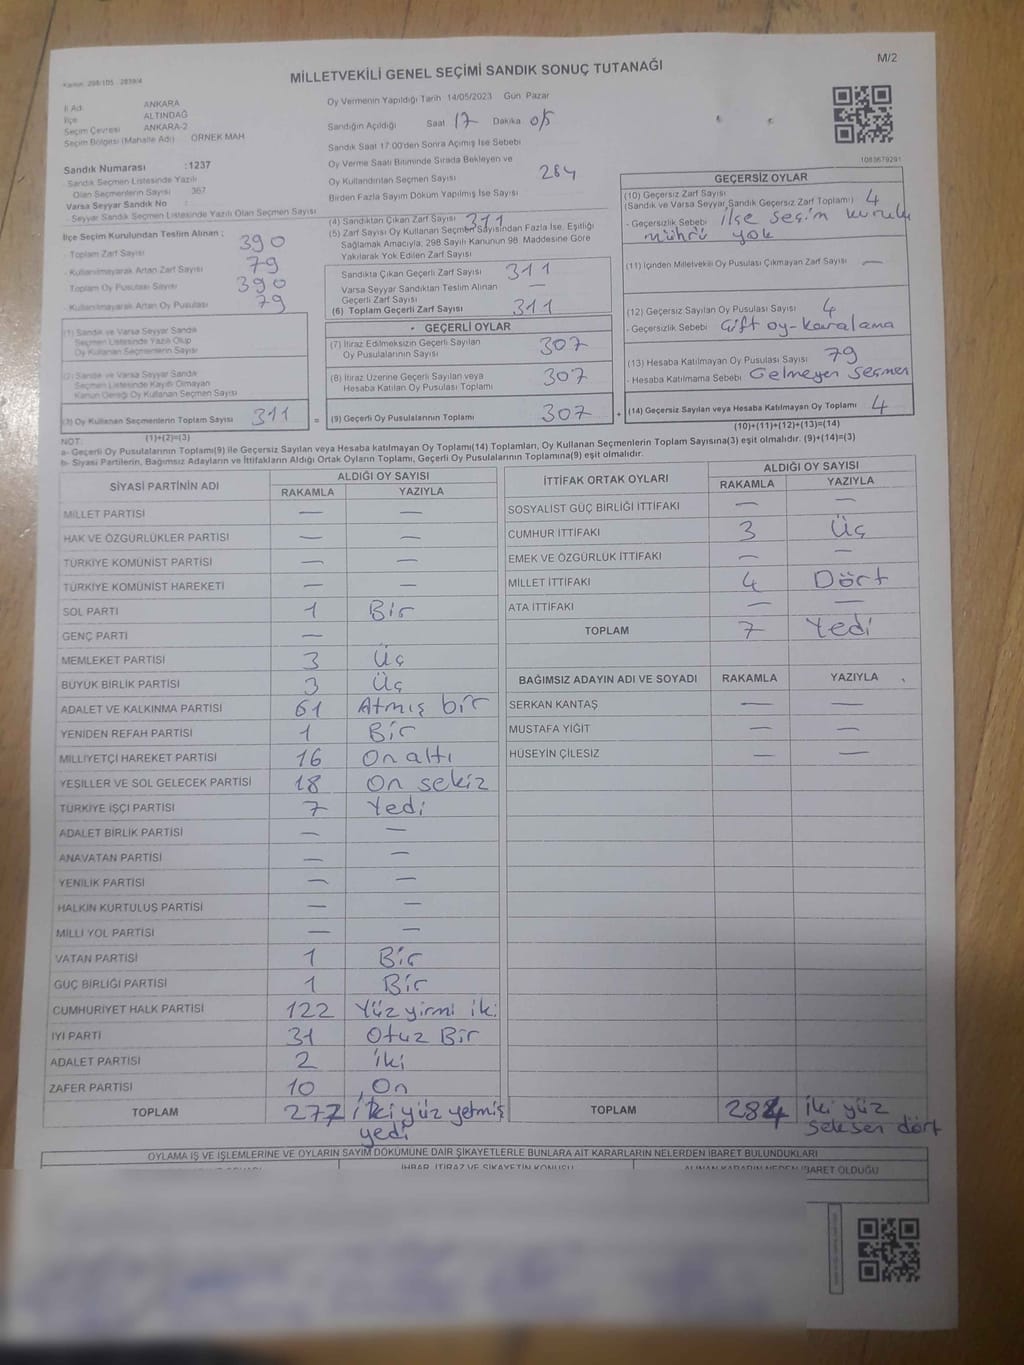 M/2
Kanun: 298/105 - 2839/4
MİLLETVEKİLİ GENEL SEÇİMİ SANDIK SONUÇ TUTANAĞI
İl Adı ANKARA
İlçe ALTINDAĞ
Seçim Çevresi ANKARA-2
Seçim Bölgesi (Mahalle Adı) ÖRNEK MAH
Sandık Numarası : 1237
- Sandık Seçmen Listesinde Yazılı
Olan Seçmenlerin Sayısı 367
Varsa Seyyar Sandık No :
- Seyyar Sandık Seçmen Listesinde Yazılı Olan Seçmen Sayısı
İlçe Seçim Kurulundan Teslim Alınan :
- Toplam Zarf Sayısı 390
- Kullanılmayarak Artan Zarf Sayısı 79
- Toplam Oy Pusulası Sayısı 390
- Kullanılmayarak Artan Oy Pusulası 79
(1) Sandık ve Varsa Seyyar Sandık
Seçmen Listesinde Yazılı Olup
Oy Kullanan Seçmenlerin Sayısı
(2) Sandık ve Varsa Seyyar Sandık
Seçmen Listesinde Kayıtlı Olmayan
Kanun Gereği Oy Kullanan Seçmen Sayısı
(3) Oy Kullanan Seçmenlerin Toplam Sayısı 311 =
(1)+(2)=(3)
Oy Vermenin Yapıldığı Tarih 14/05/2023 Gün Pazar
Sandığın Açıldığı Saat 17 Dakika 05
Sandık Saat 17:00'den Sonra Açılmış İse Sebebi
Oy Verme Saati Bitiminde Sırada Bekleyen ve
Oy Kullandırılan Seçmen Sayısı 284
Birden Fazla Sayım Döküm Yapılmış İse Sayısı
(4) Sandıktan Çıkan Zarf Sayısı 311
(5) Zarf Sayısı Oy Kullanan Seçmen Sayısından Fazla İse, Eşitliği
Sağlamak Amacıyla, 298 Sayılı Kanunun 98. Maddesine Göre
Yakılarak Yok Edilen Zarf Sayısı
Sandıkta Çıkan Geçerli Zarf Sayısı 311
Varsa Seyyar Sandıktan Teslim Alınan
Geçerli Zarf Sayısı —
(6) Toplam Geçerli Zarf Sayısı 311
GEÇERLİ OYLAR
(7) İtiraz Edilmeksizin Geçerli Sayılan
Oy Pusulalarının Sayısı 307
(8) İtiraz Üzerine Geçerli Sayılan veya
Hesaba Katılan Oy Pusulası Toplamı 307
(9) Geçerli Oy Pusulalarının Toplamı 307 +
1083679291
GEÇERSİZ OYLAR
(10) Geçersiz Zarf Sayısı
(Sandık ve Varsa Seyyar Sandık Geçersiz Zarf Toplamı) 4
- Geçersizlik Sebebi ilçe seçim kurulu
mührü yok
(11) İçinden Milletvekili Oy Pusulası Çıkmayan Zarf Sayısı —
(12) Geçersiz Sayılan Oy Pusulası Sayısı 4
- Geçersizlik Sebebi Çift oy-karalama
(13) Hesaba Katılmayan Oy Pusulası Sayısı 79
- Hesaba Katılmama Sebebi Gelmeyen seçmen
(14) Geçersiz Sayılan veya Hesaba Katılmayan Oy Toplamı 4
(10)+(11)+(12)+(13)=(14)
NOT:
a- Geçerli Oy Pusulalarının Toplamı(9) ile Geçersiz Sayılan veya Hesaba katılmayan Oy Toplamı(14) Toplamları, Oy Kullanan Seçmenlerin Toplam Sayısına(3) eşit olmalıdır. (9)+(14)=(3)
b- Siyasi Partilerin, Bağımsız Adayların ve İttifakların Aldığı Ortak Oyların Toplamı, Geçerli Oy Pusulalarının Toplamına(9) eşit olmalıdır.
SİYASİ PARTİNİN ADI ALDIĞI OY SAYISI
RAKAMLA YAZIYLA
MİLLET PARTİSİ — —
HAK VE ÖZGÜRLÜKLER PARTİSİ — —
TÜRKİYE KOMÜNİST PARTİSİ — —
TÜRKİYE KOMÜNİST HAREKETİ — —
SOL PARTİ 1 Bir
GENÇ PARTİ —
MEMLEKET PARTİSİ 3 Üç
BÜYÜK BİRLİK PARTİSİ 3 Üç
ADALET VE KALKINMA PARTİSİ 61 Atmış bir
YENİDEN REFAH PARTİSİ 1 Bir
MİLLİYETÇİ HAREKET PARTİSİ 16 On altı
YEŞİLLER VE SOL GELECEK PARTİSİ 18 On sekiz
TÜRKİYE İŞÇİ PARTİSİ 7 Yedi
ADALET BİRLİK PARTİSİ — —
ANAVATAN PARTİSİ — —
YENİLİK PARTİSİ — —
HALKIN KURTULUŞ PARTİSİ — —
MİLLİ YOL PARTİSİ — —
VATAN PARTİSİ 1 Bir
GÜÇ BİRLİĞİ PARTİSİ 1 Bir
CUMHURİYET HALK PARTİSİ 122 Yüz yirmi iki
İYİ PARTİ 31 Otuz Bir
ADALET PARTİSİ 2 İki
ZAFER PARTİSİ 10 On
TOPLAM 277 İki yüz yetmiş
yedi
İTTİFAK ORTAK OYLARI ALDIĞI OY SAYISI
RAKAMLA YAZIYLA
SOSYALİST GÜÇ BİRLİĞİ İTTİFAKI — —
CUMHUR İTTİFAKI 3 Üç
EMEK VE ÖZGÜRLÜK İTTİFAKI — —
MİLLET İTTİFAKI 4 Dört
ATA İTTİFAKI — —
TOPLAM 7 Yedi
BAĞIMSIZ ADAYIN ADI VE SOYADI RAKAMLA YAZIYLA
SERKAN KANTAŞ — —
MUSTAFA YİĞİT — —
HÜSEYİN ÇİLESİZ — —
TOPLAM 284 İki yüz
seksen dört
OYLAMA İŞ VE İŞLEMLERİNE VE OYLARIN SAYIM DÖKÜMÜNE DAİR ŞİKAYETLERLE BUNLARA AİT KARARLARIN NELERDEN İBARET BULUNDUKLARI
İHBAR, İTİRAZ VE ŞİKAYETİN KONUSU ALINAN KARARIN NEDEN İBARET OLDUĞU